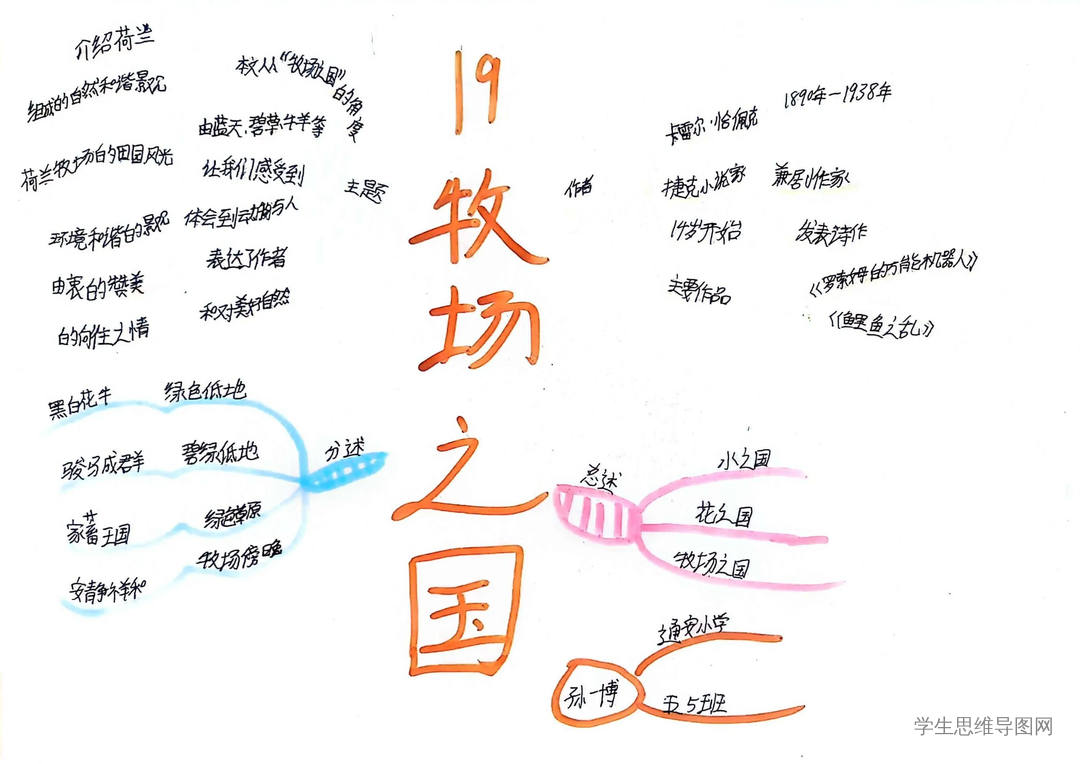 19
牧
场
之
国
主题
本文从"牧场之国"的角度
介绍荷兰
由蓝天、碧草、牛羊等
组成的自然和谐景况
让我们感受到
荷兰牧场的田园风光
体会到动物与人
环境和谐的景况
表达了作者
由衷的赞美
和对美好自然
的向往之情
作者
卡雷尔·恰佩克
1890年—1938年
捷克小说家
兼剧作家
14岁开始
发表诗作
主要作品
《罗索姆的万能机器人》
《鲤鱼之乱》
分述
绿色低地
黑白花牛
碧绿低地
骏马成群
绿色草原
家畜王国
牧场傍晚
安静祥和
总述
水之国
花之国
牧场之国
孙一博
通安小学
五5班
学生思维导图网